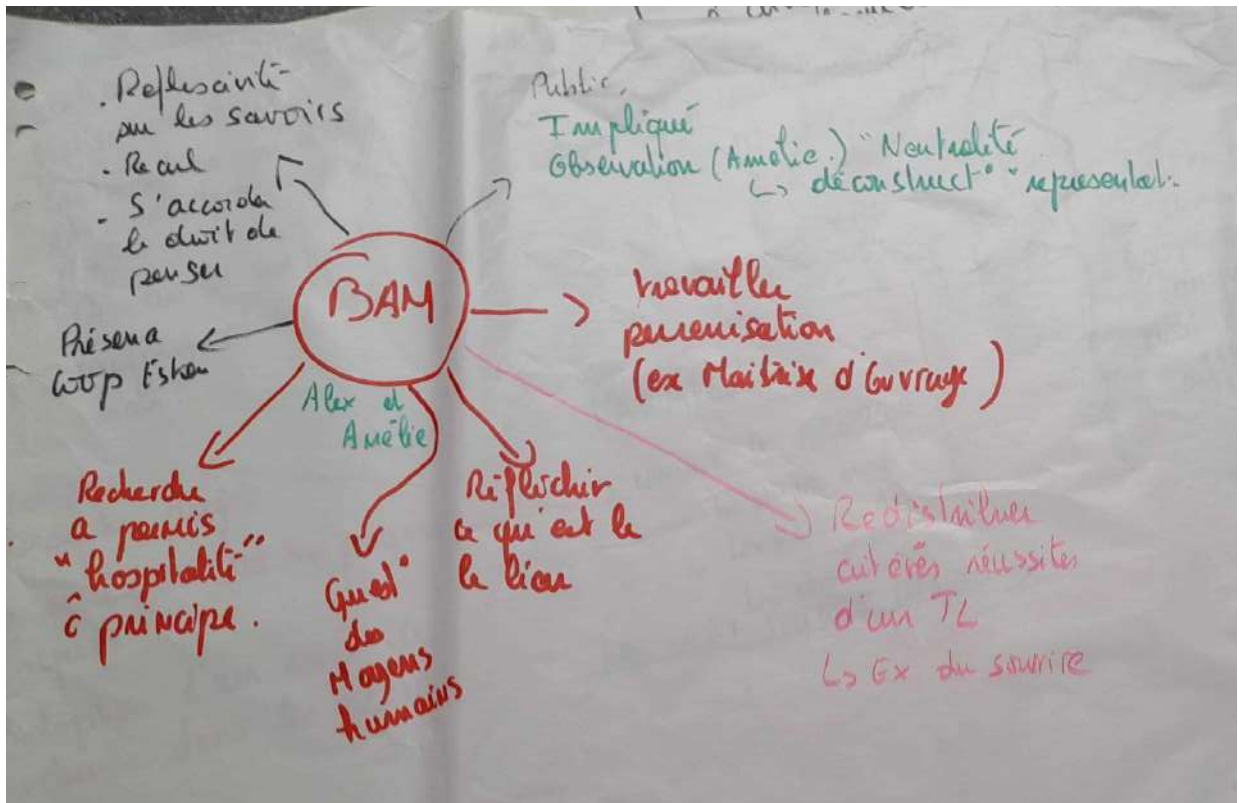 . Reflexivité
sur les savoirs
. Recul
- S'accorder
le droit de
penser
Public.
Impliqué
Observation (Amélie.) "Neutralité
↳ déconstruct° " représentat.
BAM
travailler
perrenisation
(ex Maitrise d'Ouvrage)
Présena
Coop
Alex et
Amélie
Recherche
a permis
"hospitalité"
ĉ principe.
Quest°
des
Moyens
humains
Réflechir
ce qu'est le
le lieu
Redistribuer
critères réussites
d'un TL
↳ Ex du sourire